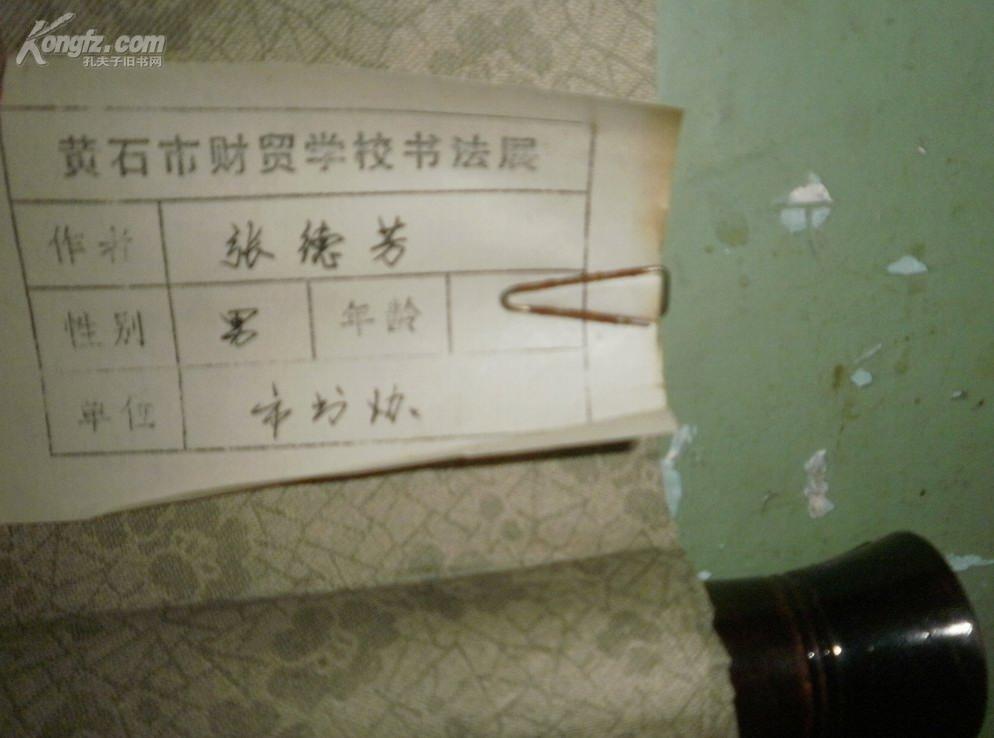 Kongfz.com
孔夫子旧书网
黄石市财贸学校书法展
作者 张德芳
性别 男 年龄
单位 市书协